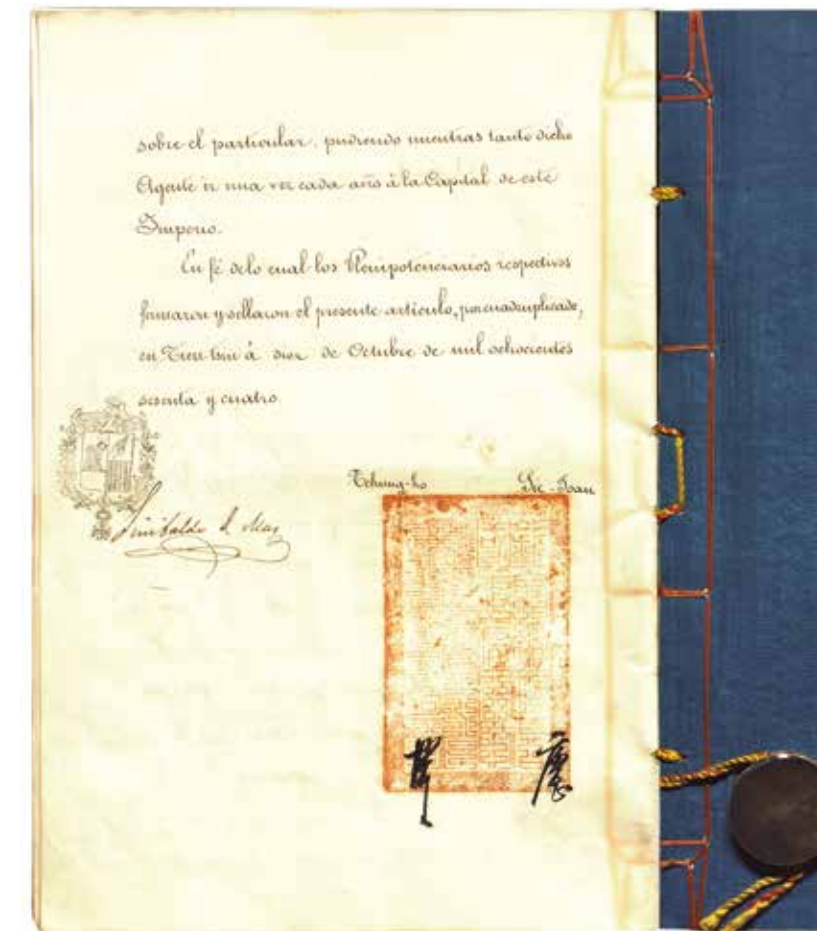 sobre el particular, pudiendo mientras tanto dicho
Agente ir una vez cada año á la Capital de este
Imperio.
En fé delo cual los Plenipotenciarios respectivos
firmaron y sellaron el presente artículo, por cuadruplicado,
en Tien-tsin á diez de Octubre de mil ochocientos
sesenta y cuatro.
Tchung-ho
Sinibaldo de Mas